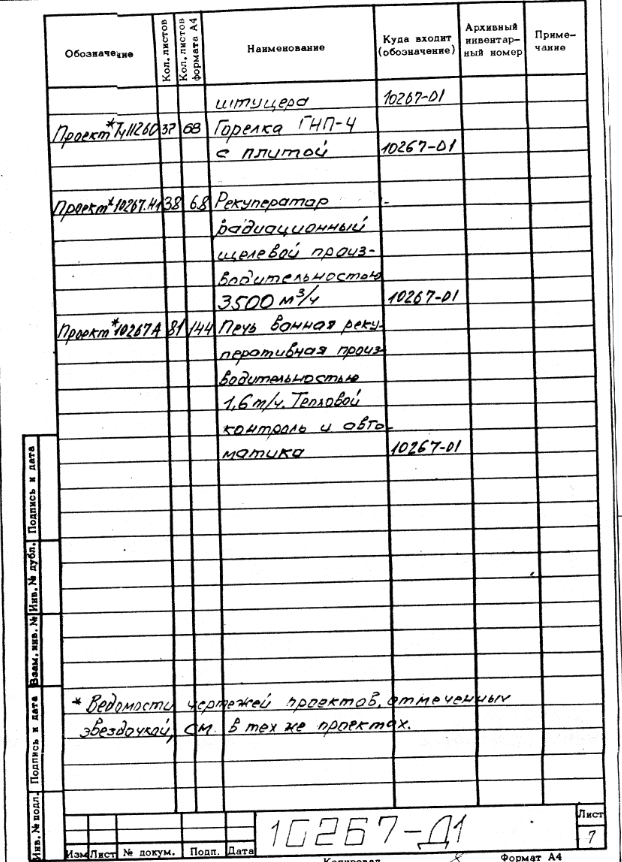 Обозначение Кол. листов Кол. листов формата А4 Наименование Куда входит (обозначение) Архивный инвентарный номер Примечание
штуцера 10267-01
Проект* 37 68 Горелка ГНП-4
с плитой 10267-01
Проект*10267.Н1 38 68 Рекуператор -
радиационный
щелевой произ-
водительностью
3500 м³/ч 10267-01
Проект*10267А 81 144 Печь ванная реку-
перативная произ-
водительностью
1,6 т/ч. Тепловой
контроль и авто-
матика 10267-01
* Ведомости чертежей проектов, отмеченных
звездочкой, см. в тех же проектах.
Инв. № подл. Подпись и дата Взам. инв. № Инв. № дубл. Подпись и дата
10267-Д1
Лист
7
Изм Лист № докум. Подп. Дата
Копировал Формат А4